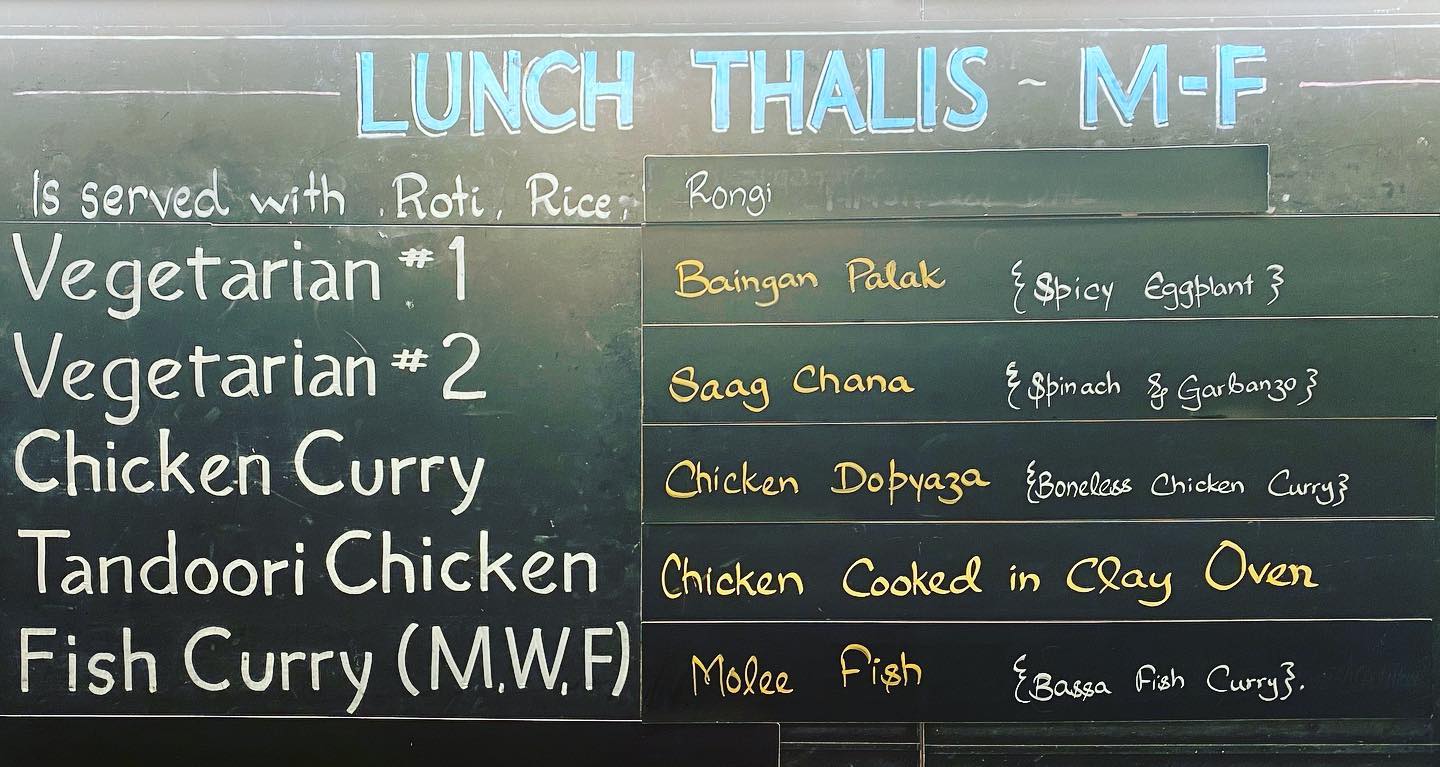 LUNCH THALIS ~ M-F
Is served with Roti, Rice, Rongi
Vegetarian #1 Baingan Palak {Spicy Eggplant}
Vegetarian #2 Saag Chana {Spinach & Garbanzo}
Chicken Curry Chicken Dopyaza {Boneless Chicken Curry}
Tandoori Chicken Chicken Cooked in Clay Oven
Fish Curry (M,W,F) Molee Fish {Bassa Fish Curry}.